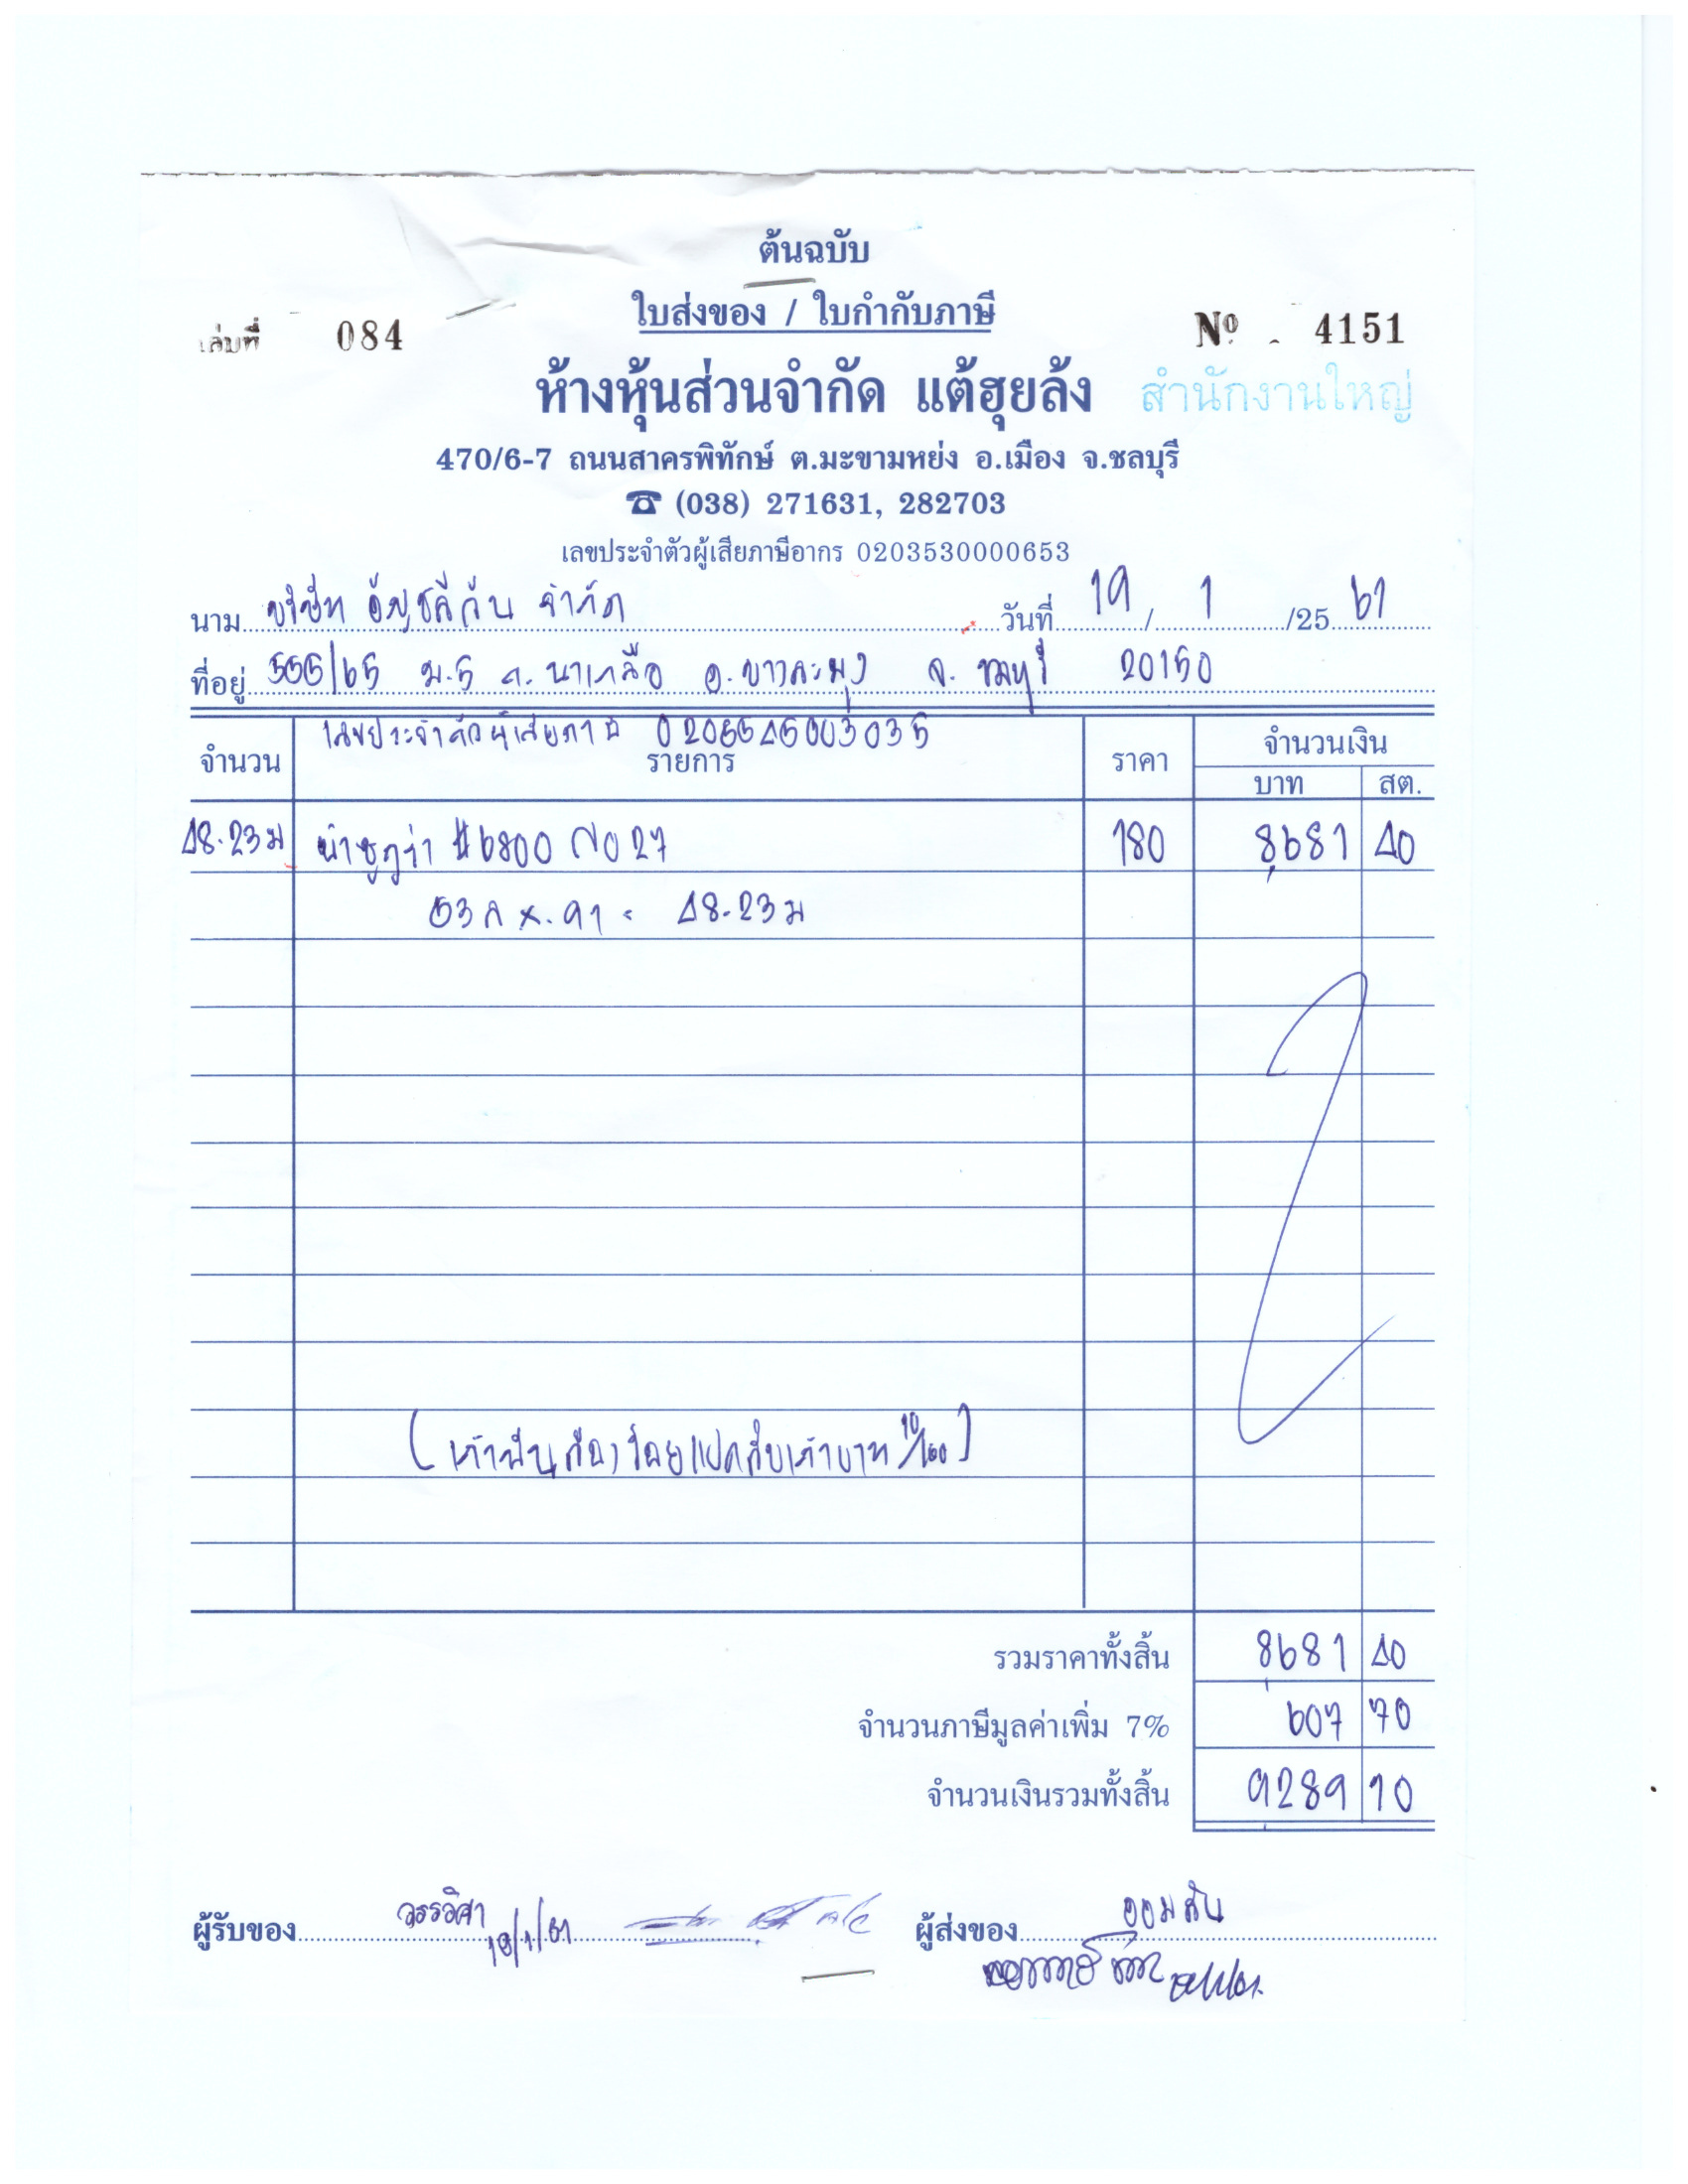 ต้นฉบับ
ใบส่งของ / ใบกำกับภาษี
เล่มที่ 084 Nº 4151
ห้างหุ้นส่วนจำกัด แต้ฮุยล้ง สำนักงานใหญ่
470/6-7 ถนนสาครพิทักษ์ ต.มะขามหย่ง อ.เมือง จ.ชลบุรี
☎ (038) 271631, 282703
เลขประจำตัวผู้เสียภาษีอากร 0203530000653
นาม บริษัท จำกัด วันที่ 19 / 1 /25 61
ที่อยู่ 555/65 ม.5 ต.นาเกลือ อ.บางละมุง จ.ชลบุรี 20150
เลขประจำตัวผู้เสียภาษี 0205545003035
จำนวน รายการ ราคา จำนวนเงิน
บาท สต.
48.23ม #6800 No 27 180 8681 40
53 ล x .91 = 48.23ม
(เก้าพันสองร้อยแปดสิบเก้าบาท 10/100)
รวมราคาทั้งสิ้น 8681 40
จำนวนภาษีมูลค่าเพิ่ม 7% 607 70
จำนวนเงินรวมทั้งสิ้น 9289 10
ผู้รับของ ผู้ส่งของ